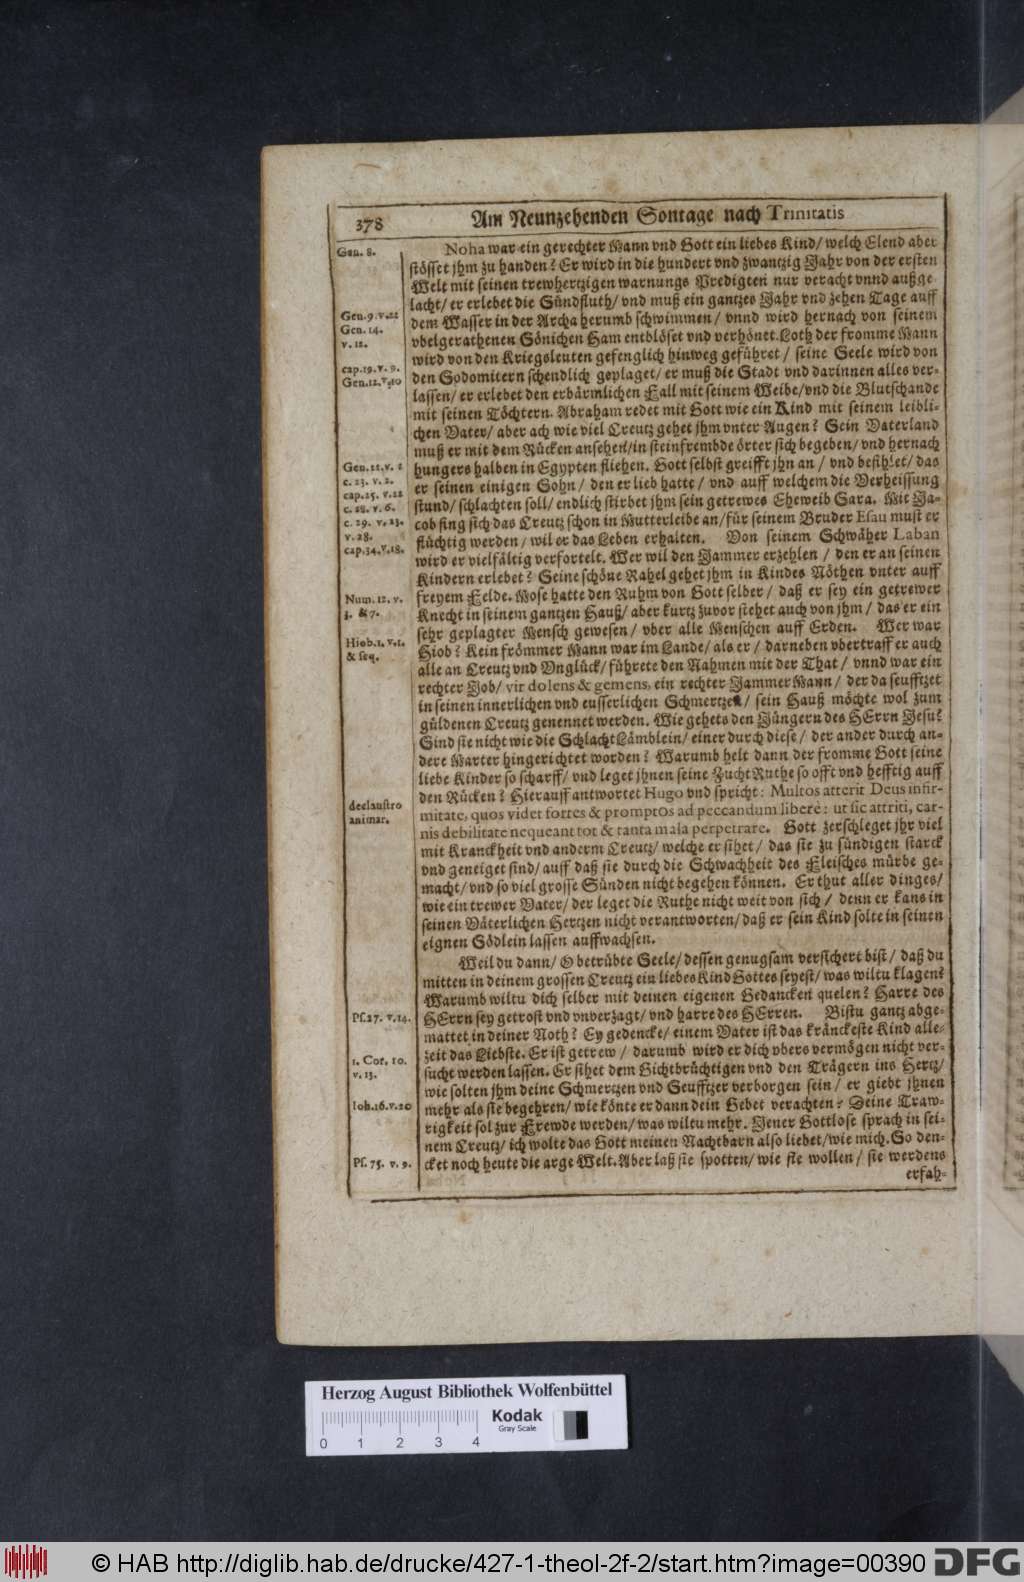 378
Am Neunzehenden Sontage nach Trinitatis
Gen. 8.
Gen.9.v.22
Gen. 14.
v. 12.
cap.19. v. 9.
Gen.12.v.10
Gen.22.v. 2
c. 23. v. 2.
cap.25. v.22
c. 28. v. 6.
c. 29. v. 23.
v. 28.
cap.34.v.18.
Num. 12. v.
3. & 7.
Hiob.1. v.1.
& seq.
declaustro
animæ.
Ps.27. v.14.
1. Cor. 10.
v. 13.
Ioh.16.v.20
Ps. 75. v. 9.
Noha war ein gerechter Mann vnd Gott ein liebes Kind/ welch Elend aber
stösset jhm zu handen? Er wird in die hundert vnd zwantzig Jahr von der ersten
Welt mit seinen trewhertzigen warnungs Predigten nur veracht vnnd außge-
lacht/ er erlebet die Sündfluth/ vnd muß ein gantzes Jahr vnd zehen Tage auff
dem Wasser in der Archa herumb schwimmen/ vnnd wird hernach von seinem
vbelgerathenen Sönichen Ham entblöset vnd verhönet. Loth der fromme Mann
wird von den Kriegsleuten gefenglich hinweg geführet/ seine Seele wird von
den Sodomitern schendlich geplaget/ er muß die Stadt vnd darinnen alles ver-
lassen/ er erlebet den erbärmlichen Fall mit seinem Weibe/ vnd die Blutschande
mit seinen Töchtern. Abraham redet mit Gott wie ein Kind mit seinem leibli-
chen Vater/ aber ach wie viel Creutz gehet jhm vnter Augen? Sein Vaterland
muß er mit dem Rücken ansehen/ in steinfrembde örter sich begeben/ vnd hernach
hungers halben in Egypten fliehen. Gott selbst greifft jhn an/ vnd befihlet/ das
er seinen einigen Sohn/ den er lieb hatte/ vnd auff welchem die Verheissung
stund/ schlachten soll/ endlich stirbet jhm sein getrewes Eheweib Sara. Mit Ja-
cob fing sich das Creutz schon in Mutterleibe an/ für seinem Bruder Esau must er
flüchtig werden/ wil er das Leben erhalten. Von seinem Schwäher Laban
wird er vielfältig verfortelt. Wer wil den Jammer erzehlen/ den er an seinen
Kindern erlebet? Seine schöne Rahel gehet jhm in Kindes Nöthen vnter auff
freyem Felde. Mose hatte den Ruhm von Gott selber/ daß er sey ein getrewer
Knecht in seinem gantzen Hauß/ aber kurtz zuvor stehet auch von jhm/ das er ein
sehr geplagter Mensch gewesen/ vber alle Menschen auff Erden. Wer war
Hiob? Kein frömmer Mann war im Lande/ als er/ darneben vbertraff er auch
alle an Creutz vnd Vnglück/ führete den Nahmen mit der That/ vnnd war ein
rechter Job/ vir dolens & gemens, ein rechter Jammer Mann/ der da seufftzet
in seinen innerlichen vnd eusserlichen Schmertzen/ sein Hauß möchte wol zum
güldenen Creutz genennet werden. Wie gehets den Jüngern des HErrn Jesu?
Sind sie nicht wie die Schlacht Lämblein/ einer durch diese/ der ander durch an-
dere Marter hingerichtet worden? Warumb helt dann der fromme Gott seine
liebe Kinder so scharff/ vnd leget jhnen seine Zucht Ruthe so offt vnd hefftig auff
den Rücken? Hierauff antwortet Hugo vnd spricht: Multos atterit Deus infir-
mitate, quos videt fortes & promptos ad peccandum liberè: ut sic attriti, car-
nis debilitate nequeant tot & tanta mala perpetrare. Gott zerschleget jhr viel
mit Kranckheit vnd anderm Creutz/ welche er sihet/ das sie zu sündigen starck
vnd geneiget sind/ auff daß sie durch die Schwachheit des Fleisches mürbe ge-
macht/ vnd so viel grosse Sünden nicht begehen können. Er thut aller dinges/
wie ein trewer Vater/ der leget die Ruthe nicht weit von sich/ denn er kans in
seinen Väterlichen Hertzen nicht verantworten/ daß er sein Kind solte in seinen
eignen Södlein lassen auffwachsen.
Weil du dann/ O betrübte Seele/ dessen genugsam versichert bist/ daß du
mitten in deinem grossen Creutz ein liebes Kind Gottes seyest/ was wiltu klagen?
Warumb wiltu dich selber mit deinen eigenen Gedancken quelen? Harre des
HErrn sey getrost vnd vnverzagt/ vnd harre des HErren. Bistu gantz abge-
mattet in deiner Noth? Ey gedencke/ einem Vater ist das kränckeste Kind alle-
zeit das Liebste. Er ist getrew/ darumb wird er dich vbers vermögen nicht ver-
sucht werden lassen. Er sihet dem Gichtbrüchtigen vnd den Trägern ins Hertz/
wie solten jhm deine Schmertzen vnd Seufftzer verborgen sein/ er giebt jhnen
mehr als sie begehren/ wie könte er dann dein Gebet verachten? Deine Traw-
rigkeit sol zur Frewde werden/ was wiltu mehr. Jener Gottlose sprach in sei-
nem Creutz/ ich wolte das Gott meinen Nachtbarn also liebet/ wie mich. So den-
cket noch heute die arge Welt. Aber laß sie spotten/ wie sie wollen/ sie werdens
erfah-
Herzog August Bibliothek Wolfenbüttel
Kodak
Gray Scale
0 1 2 3 4
© HAB http://diglib.hab.de/drucke/427-1-theol-2f-2/start.htm?image=00390
DFG